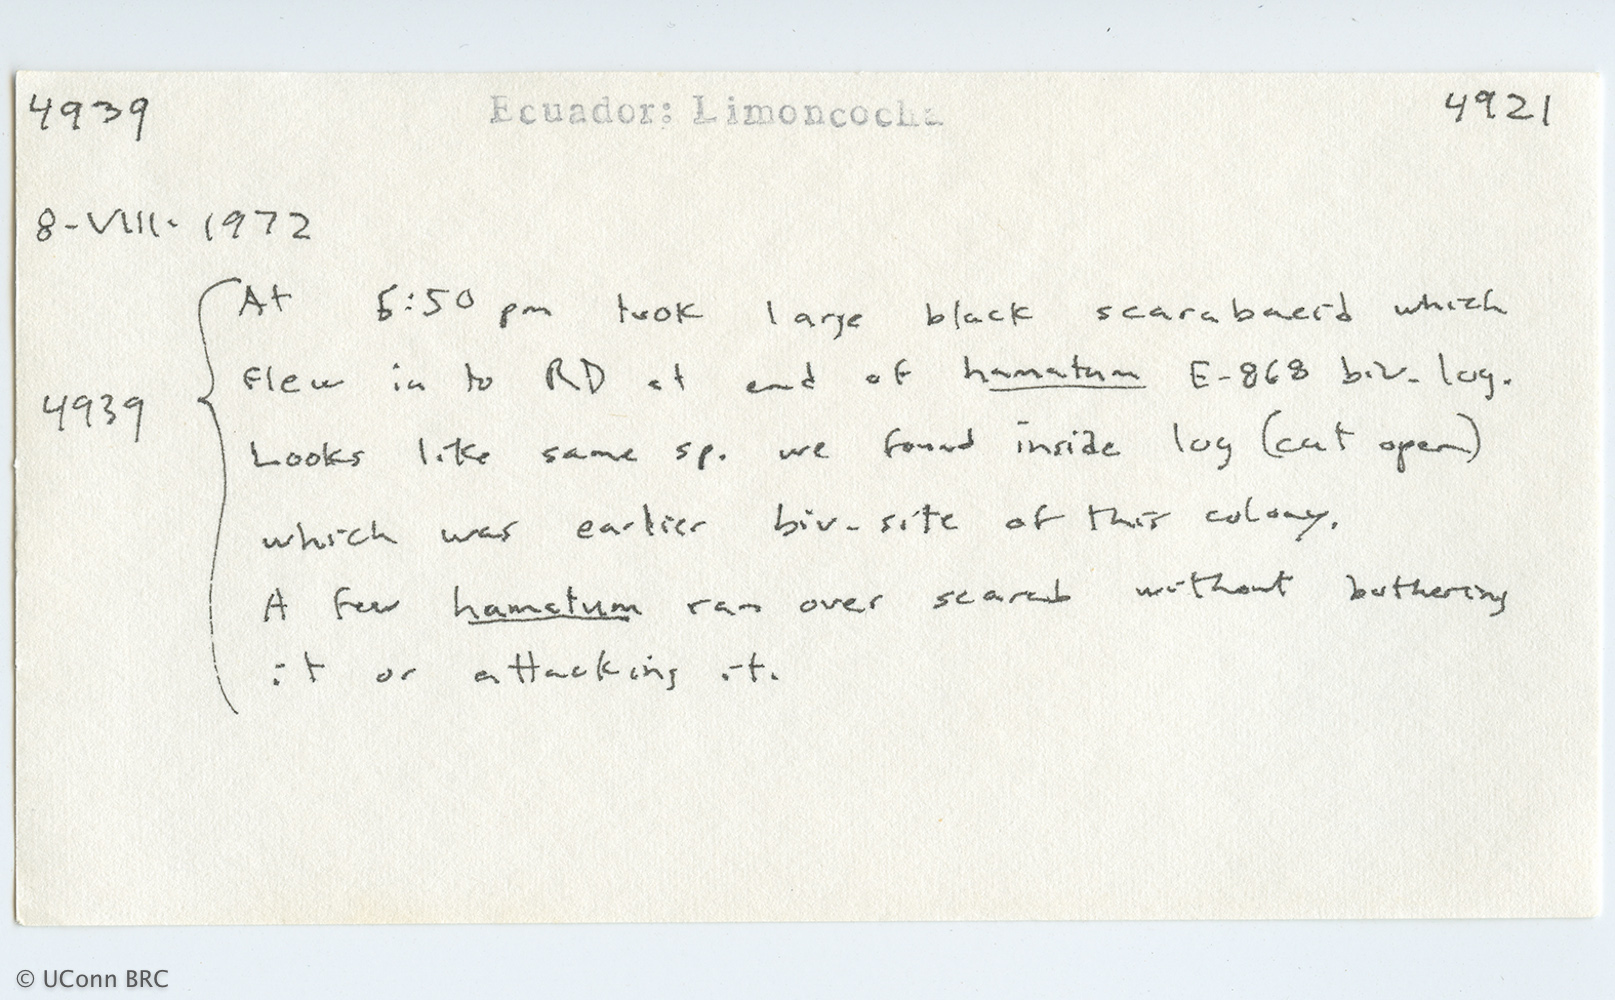 4939 Ecuador: Limoncocha 4921
8-VIII-1972
At 5:50 pm took large black scarabaeid which
flew in to RD at end of hamatum E-868 biv-log.
4939
Looks like same sp. we found inside log (cut open)
which was earlier biv-site of this colony.
A few hamatum ran over scarab without bothering
it or attacking it.
© UConn BRC